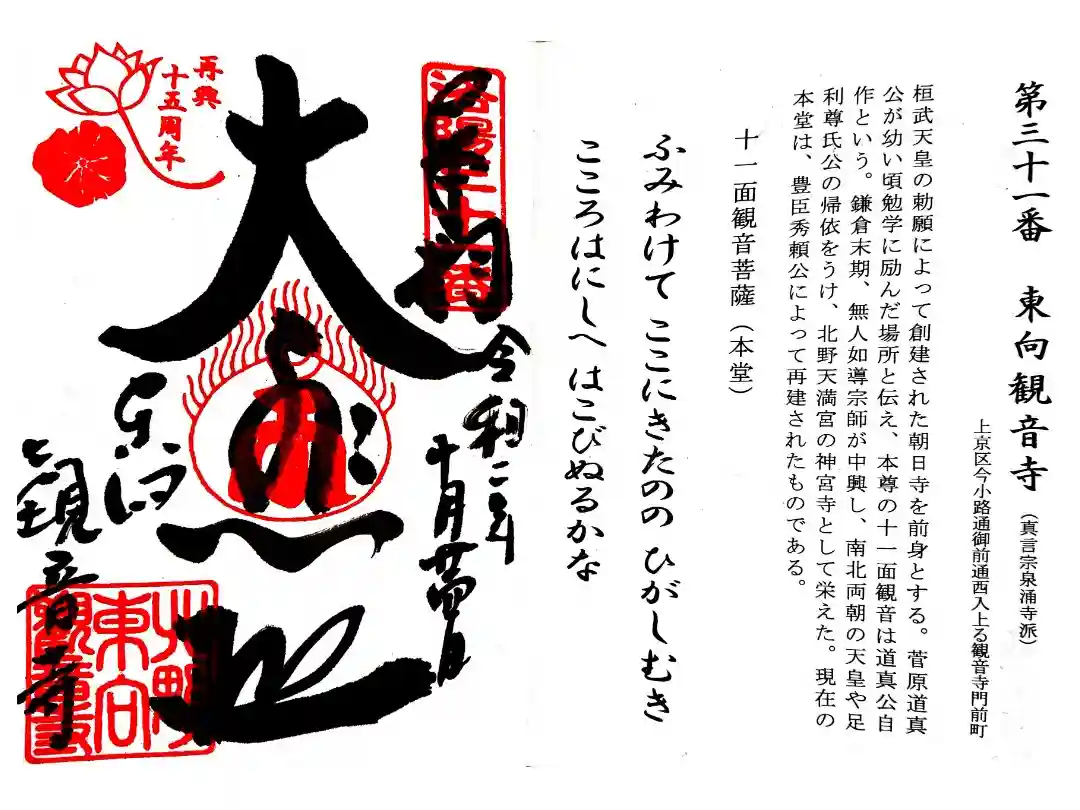 第三十一番　東向観音寺（真言宗泉涌寺派）
上京区今小路通御前通西入上る観音寺門前町
桓武天皇の勅願によって創建された朝日寺を前身とする。菅原道真
公が幼い頃勉学に励んだ場所と伝え、本尊の十一面観音は道真公自
作という。鎌倉末期、無人如導宗師が中興し、南北両朝の天皇や足
利尊氏公の帰依をうけ、北野天満宮の神宮寺として栄えた。現在の
本堂は、豊臣秀頼公によって再建されたものである。
十一面観音菩薩（本堂）
ふみわけて ここにきたのの ひがしむき
こころはにしへ はこびぬるかな
洛陽三十一番
令和二年
十月
大悲
再興
十五周年
観音寺
北野
東向
観音寺